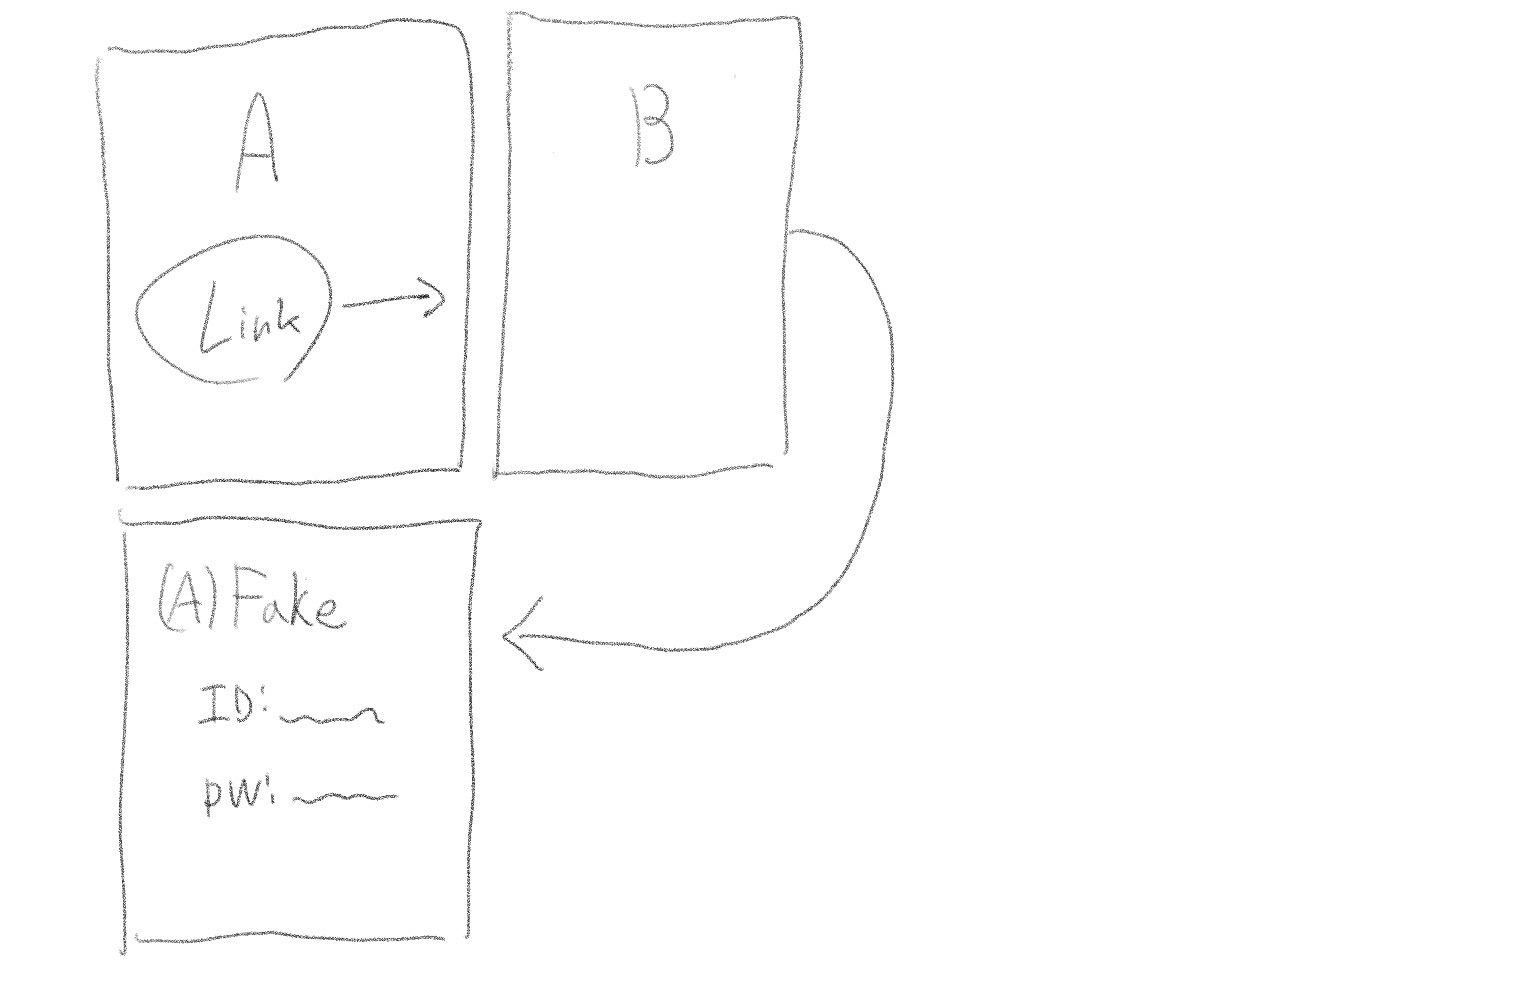 A
Link
B
(A) Fake
ID:
PW: